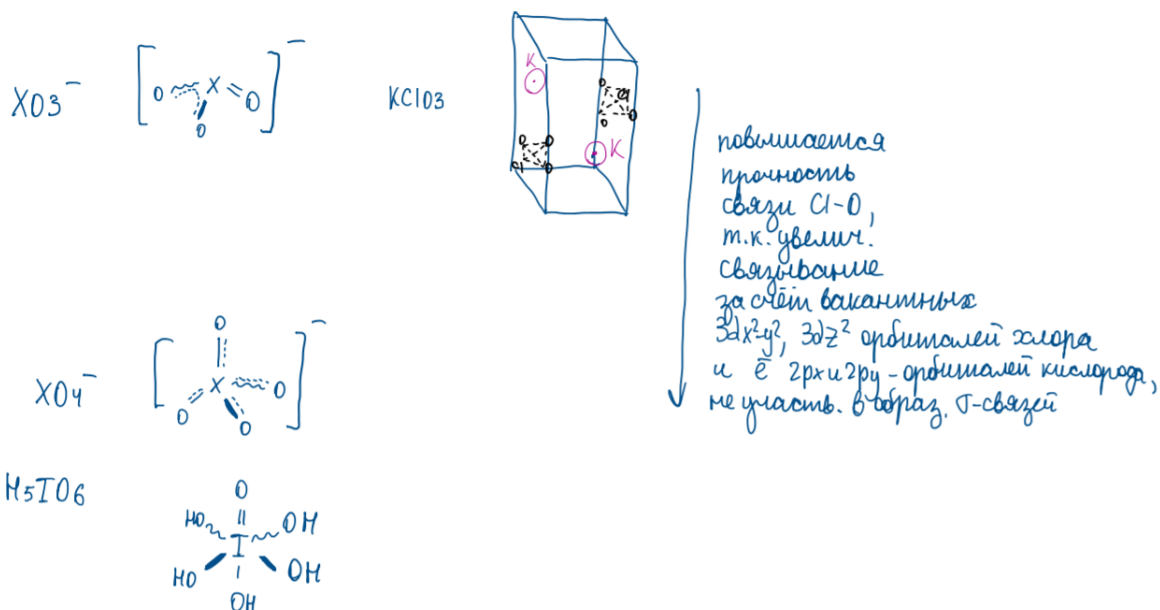 XO3⁻
[O X O O]⁻
KClO3
K
O
Cl
O
O
K
O
O
Cl
O
повышается
прочность
связи Cl-O,
т.к. увелич.
связывание
за счёт вакантных
3dx²-y², 3dz² орбиталей хлора
и ē 2px и 2py-орбиталей кислорода,
не участь. в образ. σ-связей
XO4⁻
O
[X O
O O]⁻
H5IO6
O
HO OH
I
HO OH
OH